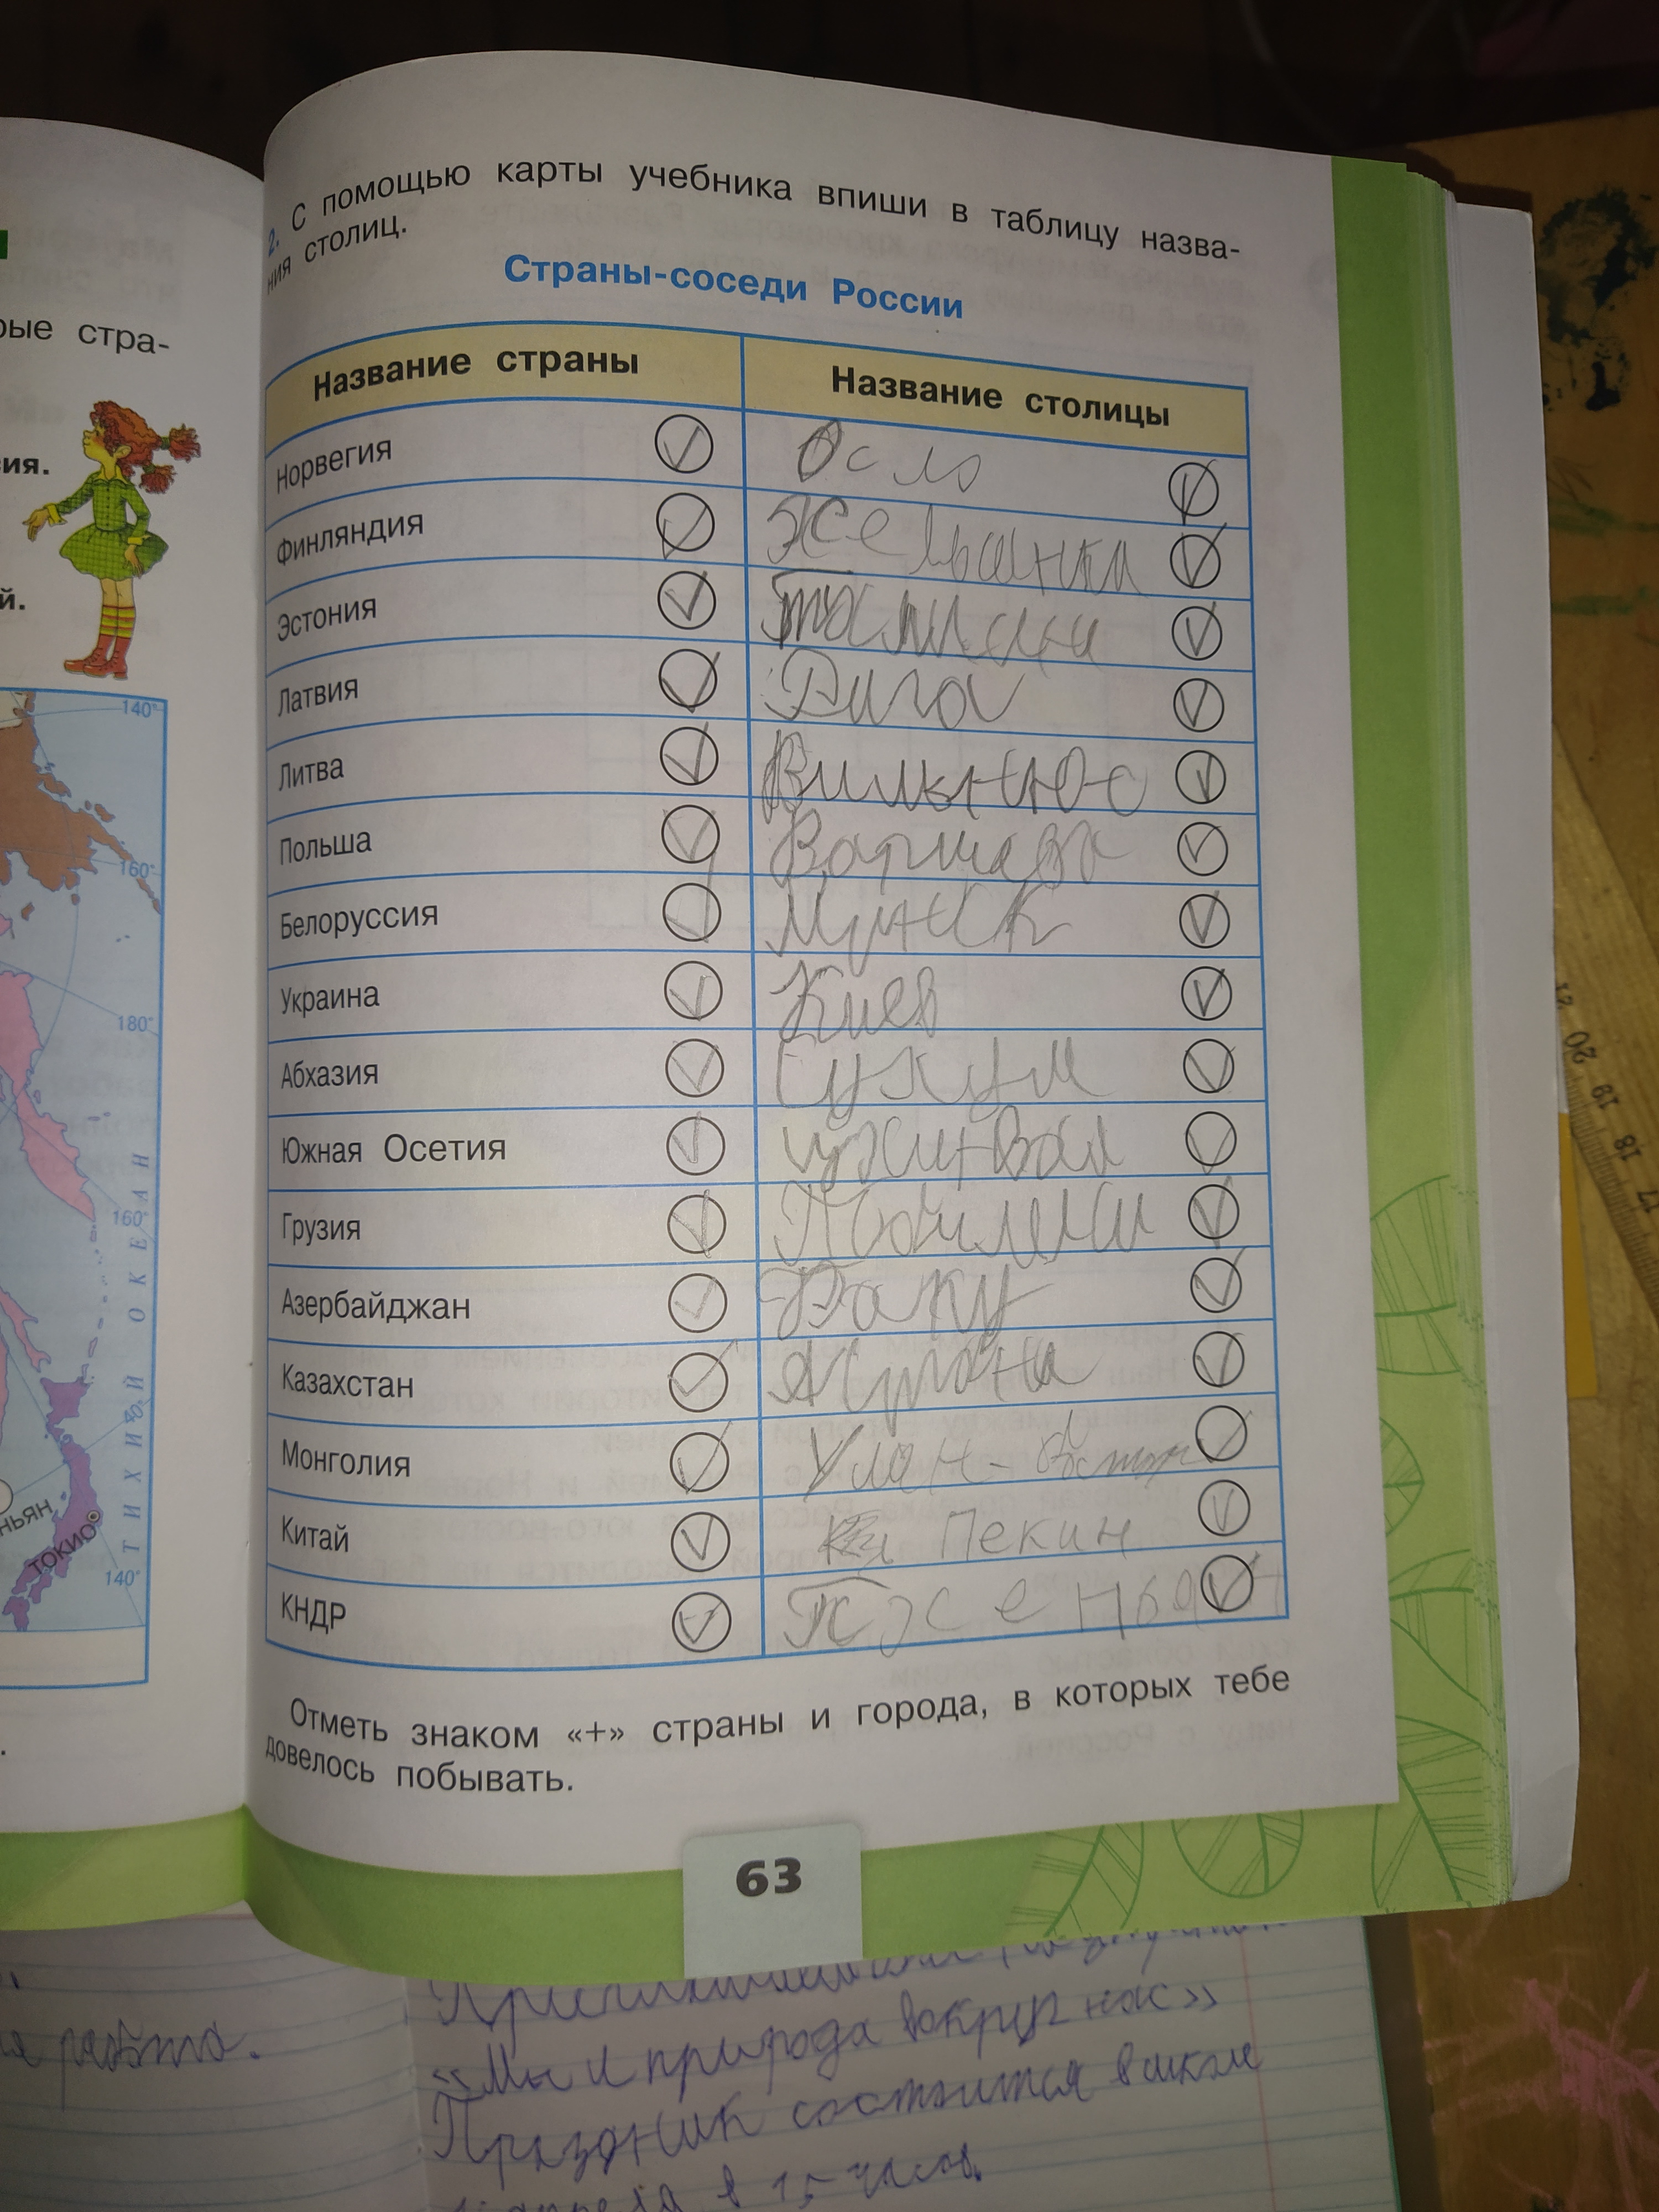 рые стра-
ия.
й.
140°
160°
180°
160°
НЬЯН
ТОКИО
ТИХИЙ ОКЕАН
140°
2. С помощью карты учебника впиши в таблицу назва-
ния столиц.
Страны-соседи России
Название страны Название столицы
Норвегия Осло
Финляндия
Эстония
Латвия Рига
Литва Вильнюс
Польша Варшава
Белоруссия Минск
Украина Киев
Абхазия Сухум
Южная Осетия
Грузия
Азербайджан Баку
Казахстан Астана
Монголия Улан-
Китай Пекин
КНДР
Отметь знаком «+» страны и города, в которых тебе
довелось побывать.
63
«Мы и природа вокруг нас»
Праздник состоится в школе
в 15 часов.
21 20 19 18 17